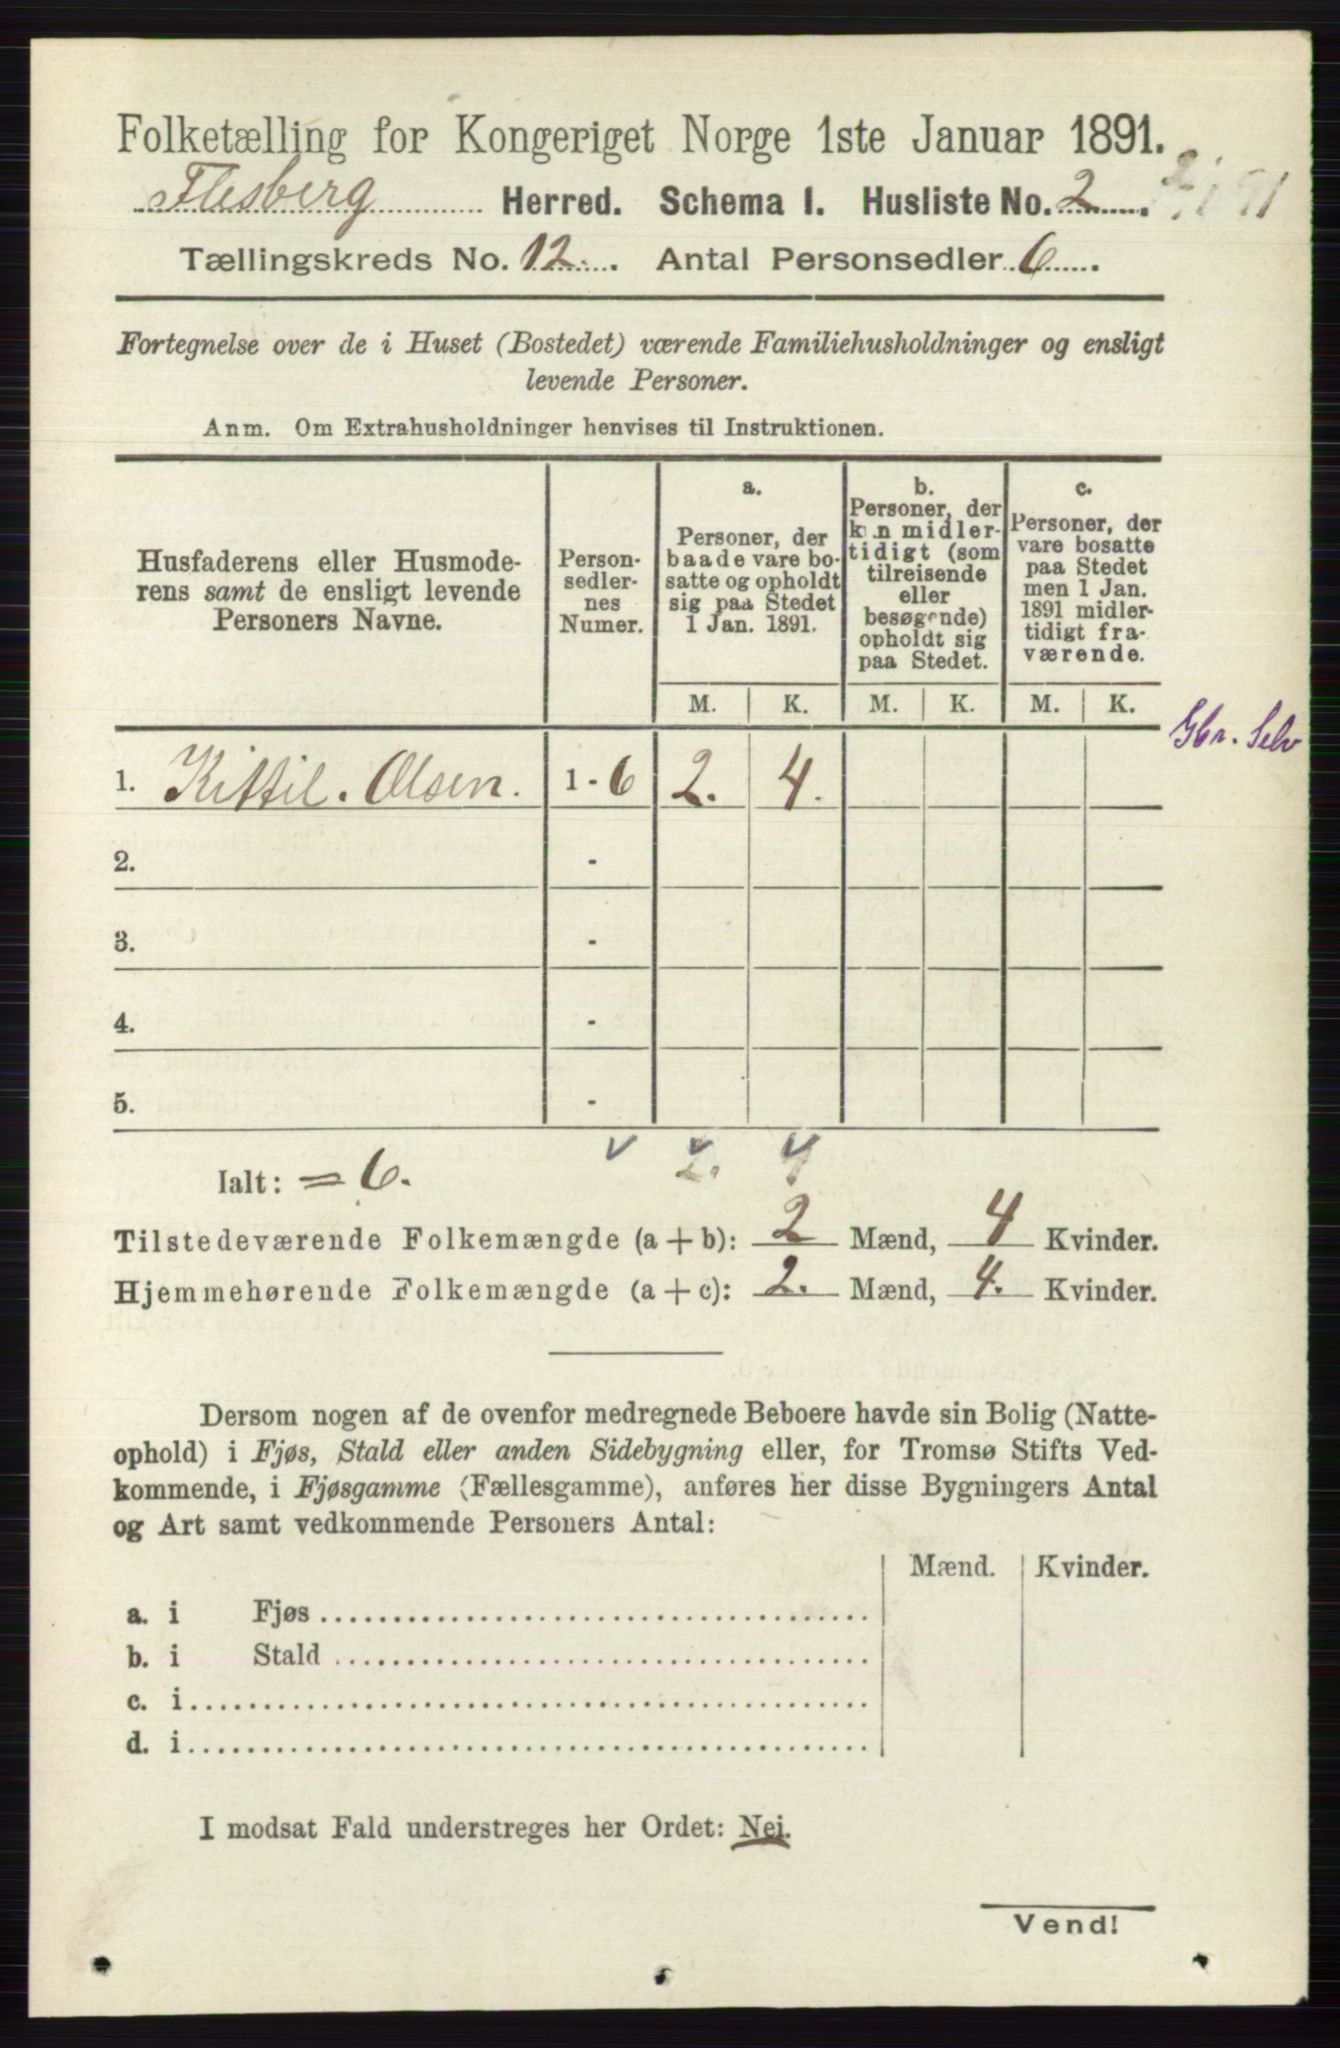 Folketælling for Kongeriget Norge 1ste Januar 1891.
Flesberg Herred. Schema I. Husliste No. 2
Tællingskreds No. 12. Antal Personsedler 6
Fortegnelse over de i Huset (Bostedet) værende Familiehusholdninger og ensligt
levende Personer.
Anm. Om Extrahusholdninger henvises til Instruktionen.
Husfaderens eller Husmode-
rens samt de ensligt levende
Personers Navne.
Person-
sedler-
nes
Numer.
a.
Personer, der
baade vare bo-
satte og opholdt
sig paa Stedet
1 Jan. 1891.
b.
Personer, der
kun midler-
tidigt (som
tilreisende
eller
besøgende)
opholdt sig
paa Stedet.
c.
Personer, der
vare bosatte
paa Stedet
men 1 Jan.
1891 midler-
tidigt fra-
værende.
M. K. M. K. M. K.
Gbr. Selv
1. Kittil. Olsen. 1 - 6 2. 4.
2. -
3. -
4. -
5. -
2. 4
Ialt: = 6.
Tilstedeværende Folkemængde (a + b): 2 Mænd, 4 Kvinder.
Hjemmehørende Folkemængde (a + c): 2. Mænd, 4. Kvinder.
Dersom nogen af de ovenfor medregnede Beboere havde sin Bolig (Natte-
ophold) i Fjøs, Stald eller anden Sidebygning eller, for Tromsø Stifts Ved-
kommende, i Fjøsgamme (Fællesgamme), anføres her disse Bygningers Antal
og Art samt vedkommende Personers Antal:
Mænd. Kvinder.
a. i Fjøs
b. i Stald
c. i
d. i
I modsat Fald understreges her Ordet: Nei.
Vend!